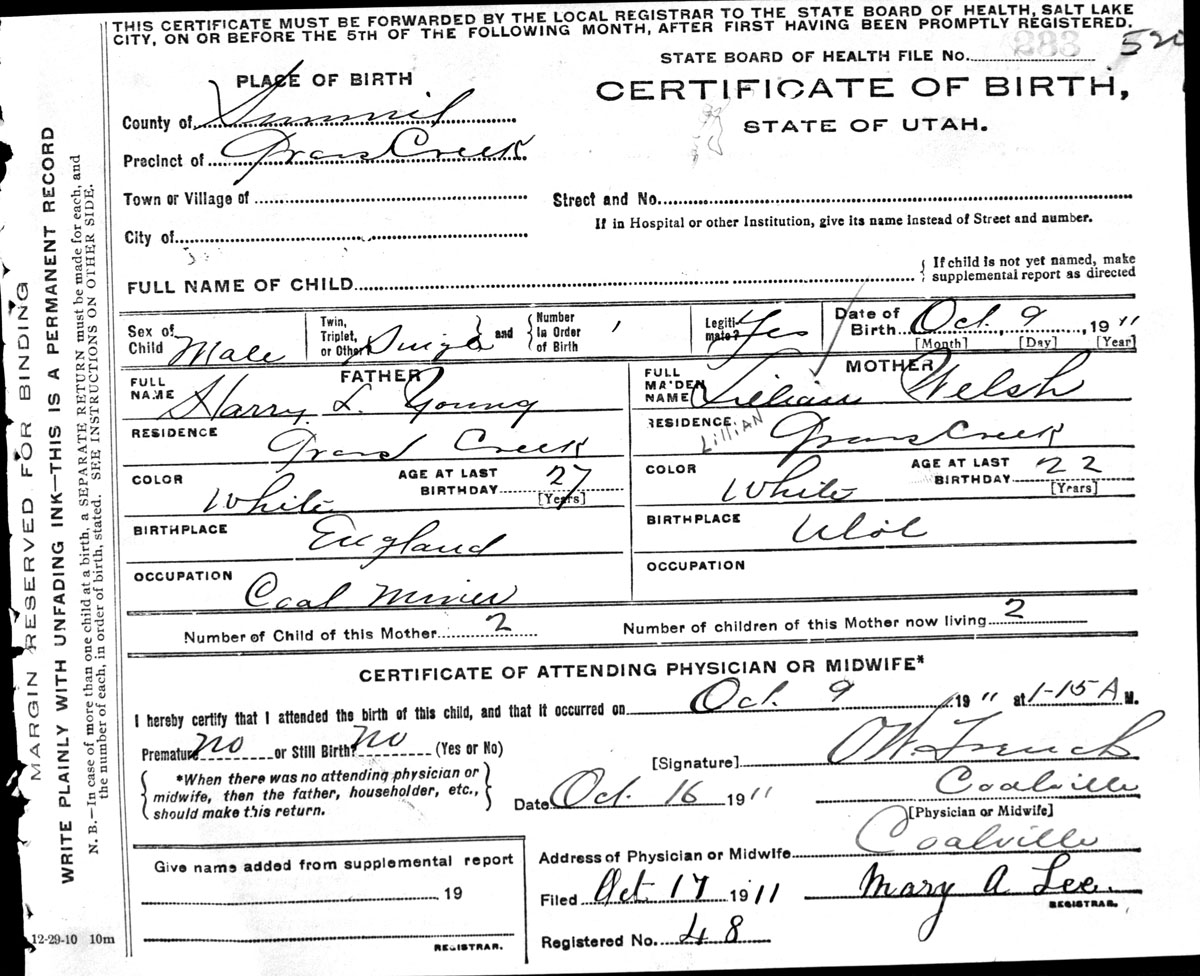 THIS CERTIFICATE MUST BE FORWARDED BY THE LOCAL REGISTRAR TO THE STATE BOARD OF HEALTH, SALT LAKE
CITY, ON OR BEFORE THE 5TH OF THE FOLLOWING MONTH, AFTER FIRST HAVING BEEN PROMPTLY REGISTERED.
STATE BOARD OF HEALTH FILE No. 283 520
PLACE OF BIRTH
CERTIFICATE OF BIRTH,
STATE OF UTAH.
County of Summit
Precinct of Grass Creek
Town or Village of
Street and No.
If in Hospital or other Institution, give its name instead of Street and number.
City of
FULL NAME OF CHILD
{ If child is not yet named, make
supplemental report as directed
Sex of
Child Male
Twin,
Triplet,
or Other Single } and { Number
in Order
of Birth 1
Legiti-
mate? Yes
Date of
Birth Oct. 9, 1911
[Month] [Day] [Year]
FATHER
FULL
NAME Harry L. Young
RESIDENCE Grass Creek
COLOR White
AGE AT LAST
BIRTHDAY 27
[Years]
BIRTHPLACE England
OCCUPATION Coal Miner
MOTHER
FULL
MAIDEN
NAME Lilliam Welsh
LILLIAN
RESIDENCE Grass Creek
COLOR White
AGE AT LAST
BIRTHDAY 22
[Years]
BIRTHPLACE
OCCUPATION
Number of Child of this Mother 2
Number of children of this Mother now living 2
CERTIFICATE OF ATTENDING PHYSICIAN OR MIDWIFE*
I hereby certify that I attended the birth of this child, and that it occurred on Oct. 9 1911 at 1-15 A M.
Premature no or Still Birth? no (Yes or No)
{ *When there was no attending physician or
midwife, then the father, householder, etc.,
should make this return. }
[Signature] OW. French
Date Oct. 16 1911
Coalville
[Physician or Midwife]
Address of Physician or Midwife Coalville
Filed Oct. 17 1911 Mary A Lee.
REGISTRAR.
Registered No. 48
Give name added from supplemental report
19
REGISTRAR.
MARGIN RESERVED FOR BINDING
WRITE PLAINLY WITH UNFADING INK—THIS IS A PERMANENT RECORD
N. B.—In case of more than one child at a birth, a SEPARATE RETURN must be made for each, and
the number of each, in order of birth, stated. SEE INSTRUCTIONS ON OTHER SIDE.
12-29-10 10m